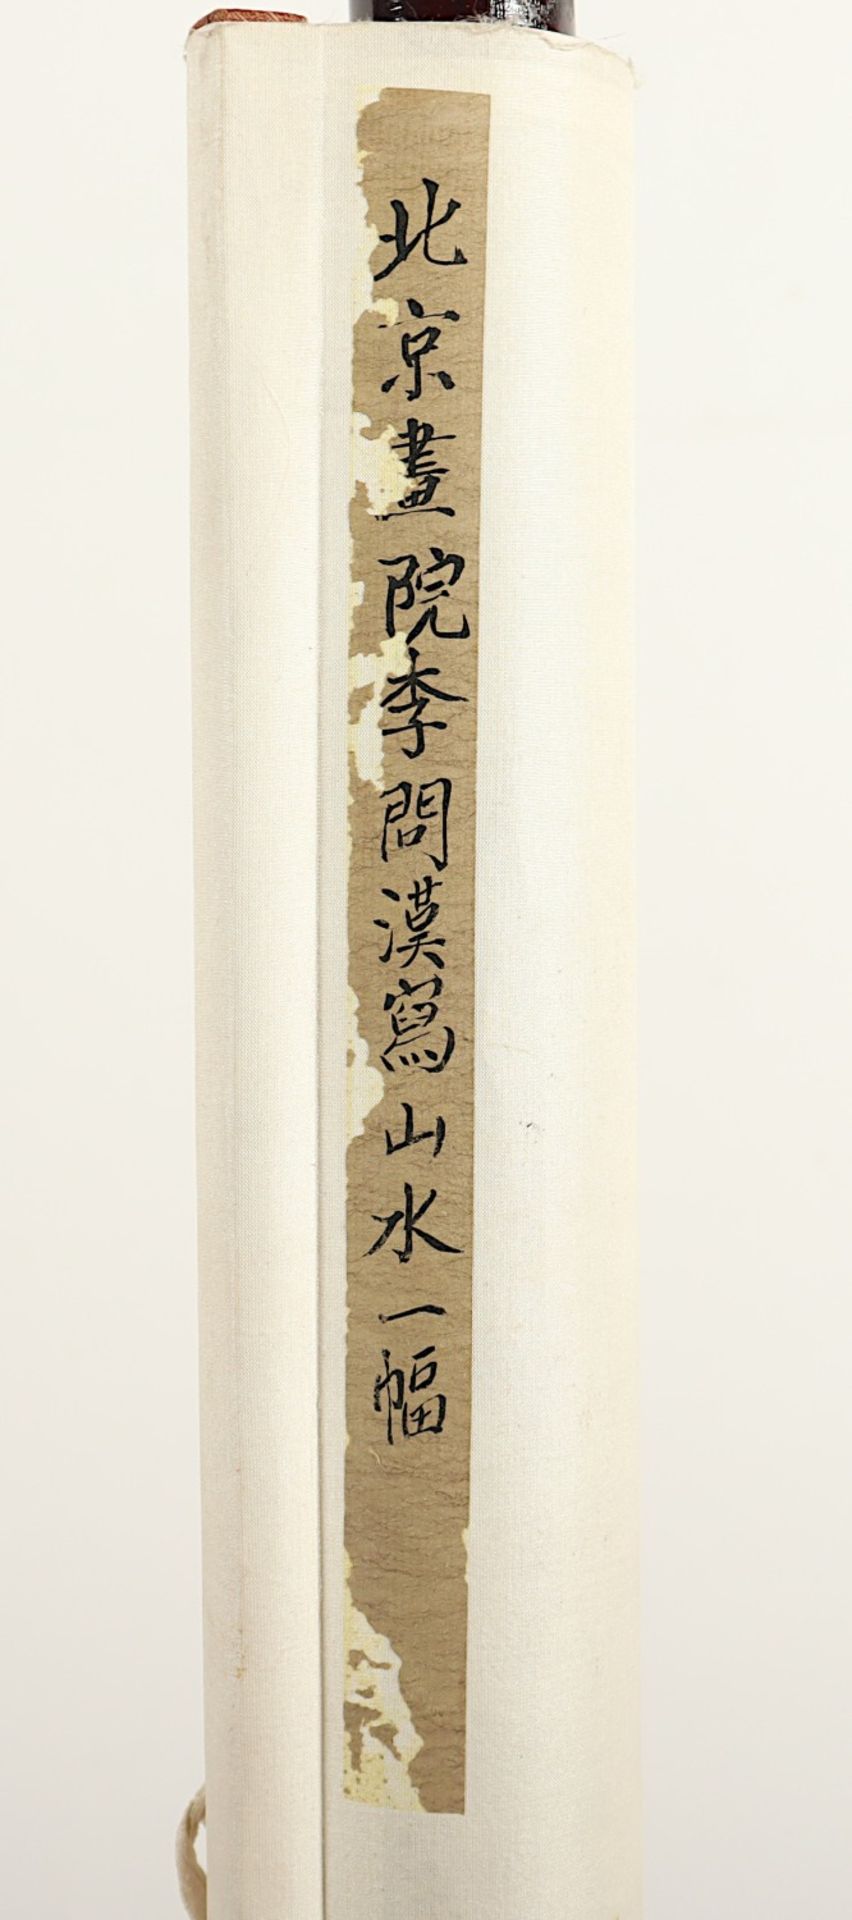 北京畫院李問漢寫山水一幅